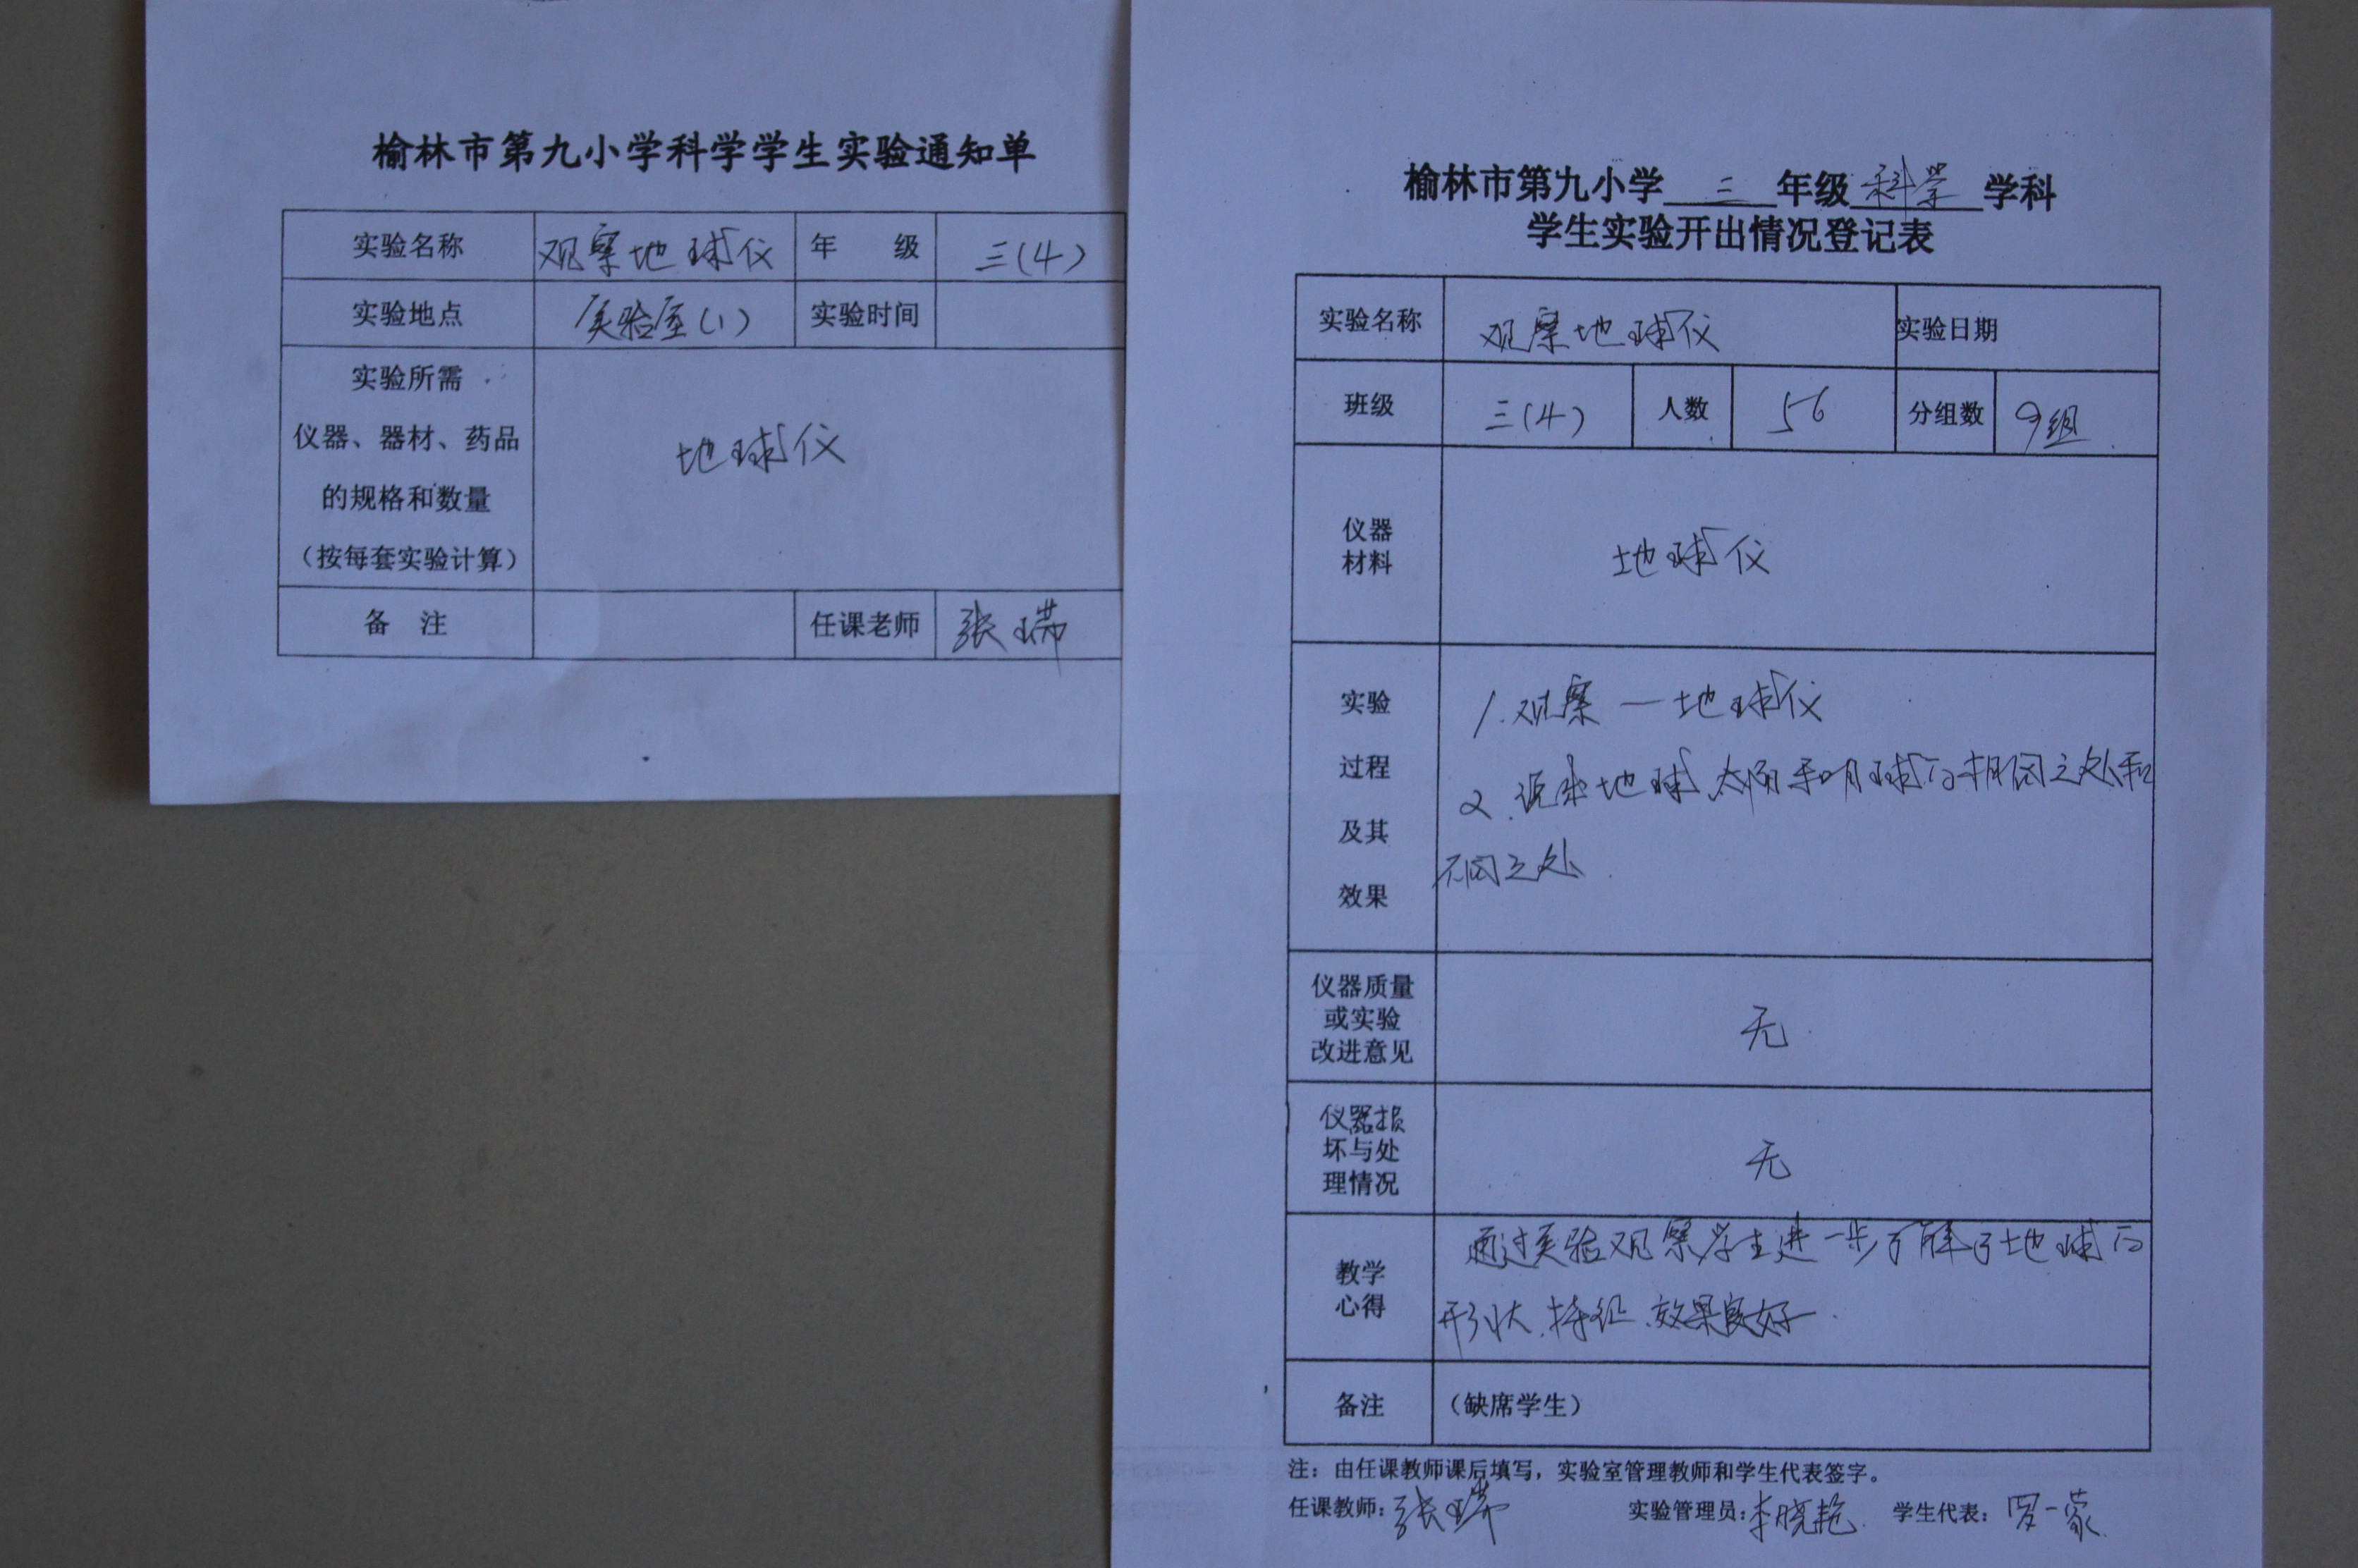 榆林市第九小学科学学生实验通知单
实验名称 观察地球仪 年 级 三(4)
实验地点 实验室(1) 实验时间
实验所需
仪器、器材、药品
的规格和数量
（按每套实验计算）
地球仪
备 注 任课老师 张瑞
榆林市第九小学 三 年级 科学 学科
学生实验开出情况登记表
实验名称 观察地球仪 实验日期
班级 三(4) 人数 56 分组数 9组
仪器
材料
地球仪
实验
过程
及其
效果
1.观察一地球仪
2.说出地球、太阳和月球的相同之处和
不同之处
仪器质量
或实验
改进意见
无
仪器损
坏与处
理情况
无
教学
心得
通过实验观察学生进一步了解了地球的
形状、特征、效果良好.
备注 （缺席学生）
注：由任课教师课后填写，实验室管理教师和学生代表签字。
任课教师：张瑞 实验管理员：李晓艳 学生代表：罗一蒙